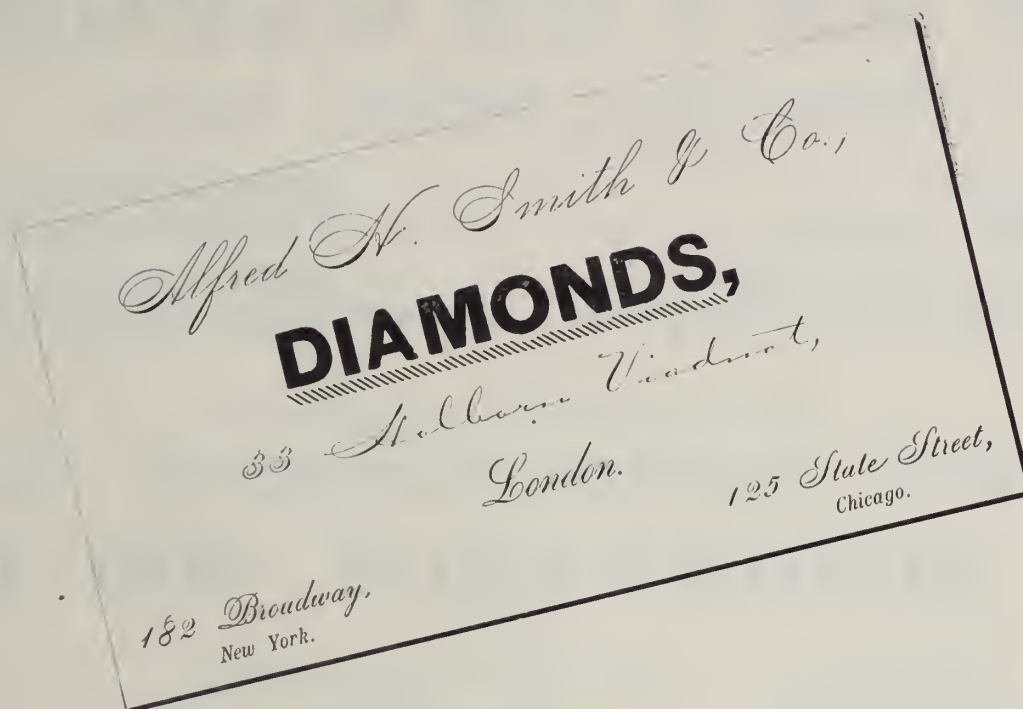 Alfred H. Smith & Co.,
DIAMONDS,
33 Holborn Viaduct,
London.
125 State Street,
Chicago.
182 Broadway,
New York.